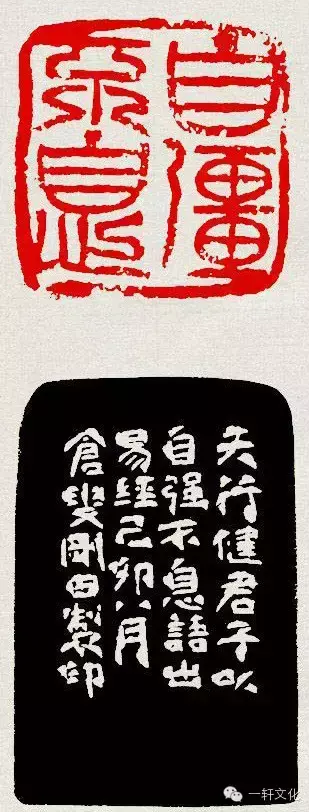 自彊
不息
天行健君子以
自强不息語出
易經己卯八月
倉叟剛田製印
一轩文化